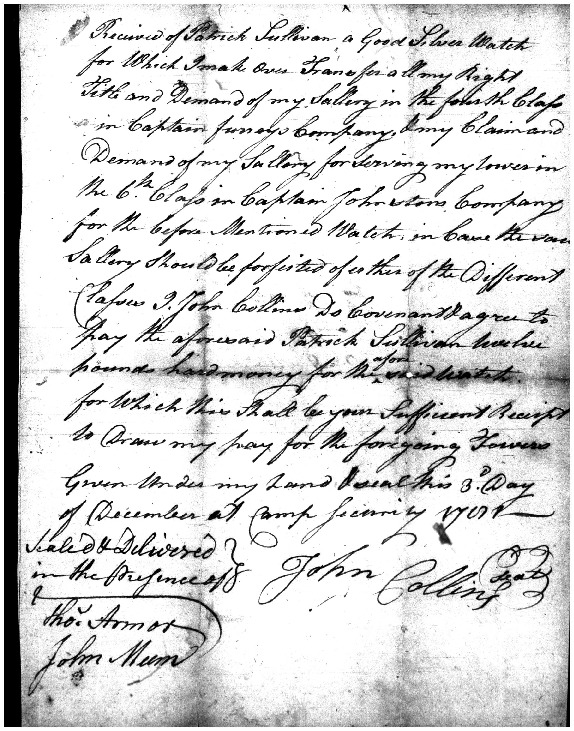 Received of Patrick Sullivan a Good Silver Watch
for Which I make Over Transfer all my Right
Title and Demand of my Sallery in the fourth Class
in Captain Company, & my Claim and
Demand of my Sallery for Serving my towers in
the 6th Class in Captain Johnstons Company
for the before Mentioned Watch, in Case the said
Sallery Should be forfited of either of the Different
Classes I John Collins Do Covenant & agree to
pay the aforesaid Patrick Sullivan twelve
pounds hard money for the afore said Watch
for Which this Shall be your Sufficient Receipt
to Draw my pay for the foregoing Towers
Given Under my hand & seal this 3d Day
of December at Camp Security
Sealed & Delivered
in the Presence of
John Collins Seal
Thos. Armor
John